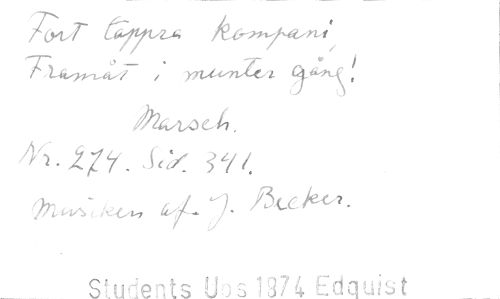 Fort tappra kompani,
Framåt i munter gång!
Marsch.
Nr. 274. Sid. 341.
Musiken af. J. Becker.
Students Ups 1874 Edquist